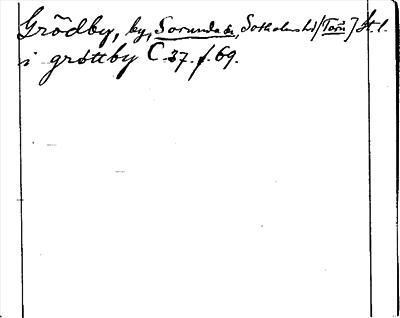 Grödby, by, Sorunda sn, Sotholms hd [Törn] St. l.
i gröttby C 37. f. 69.